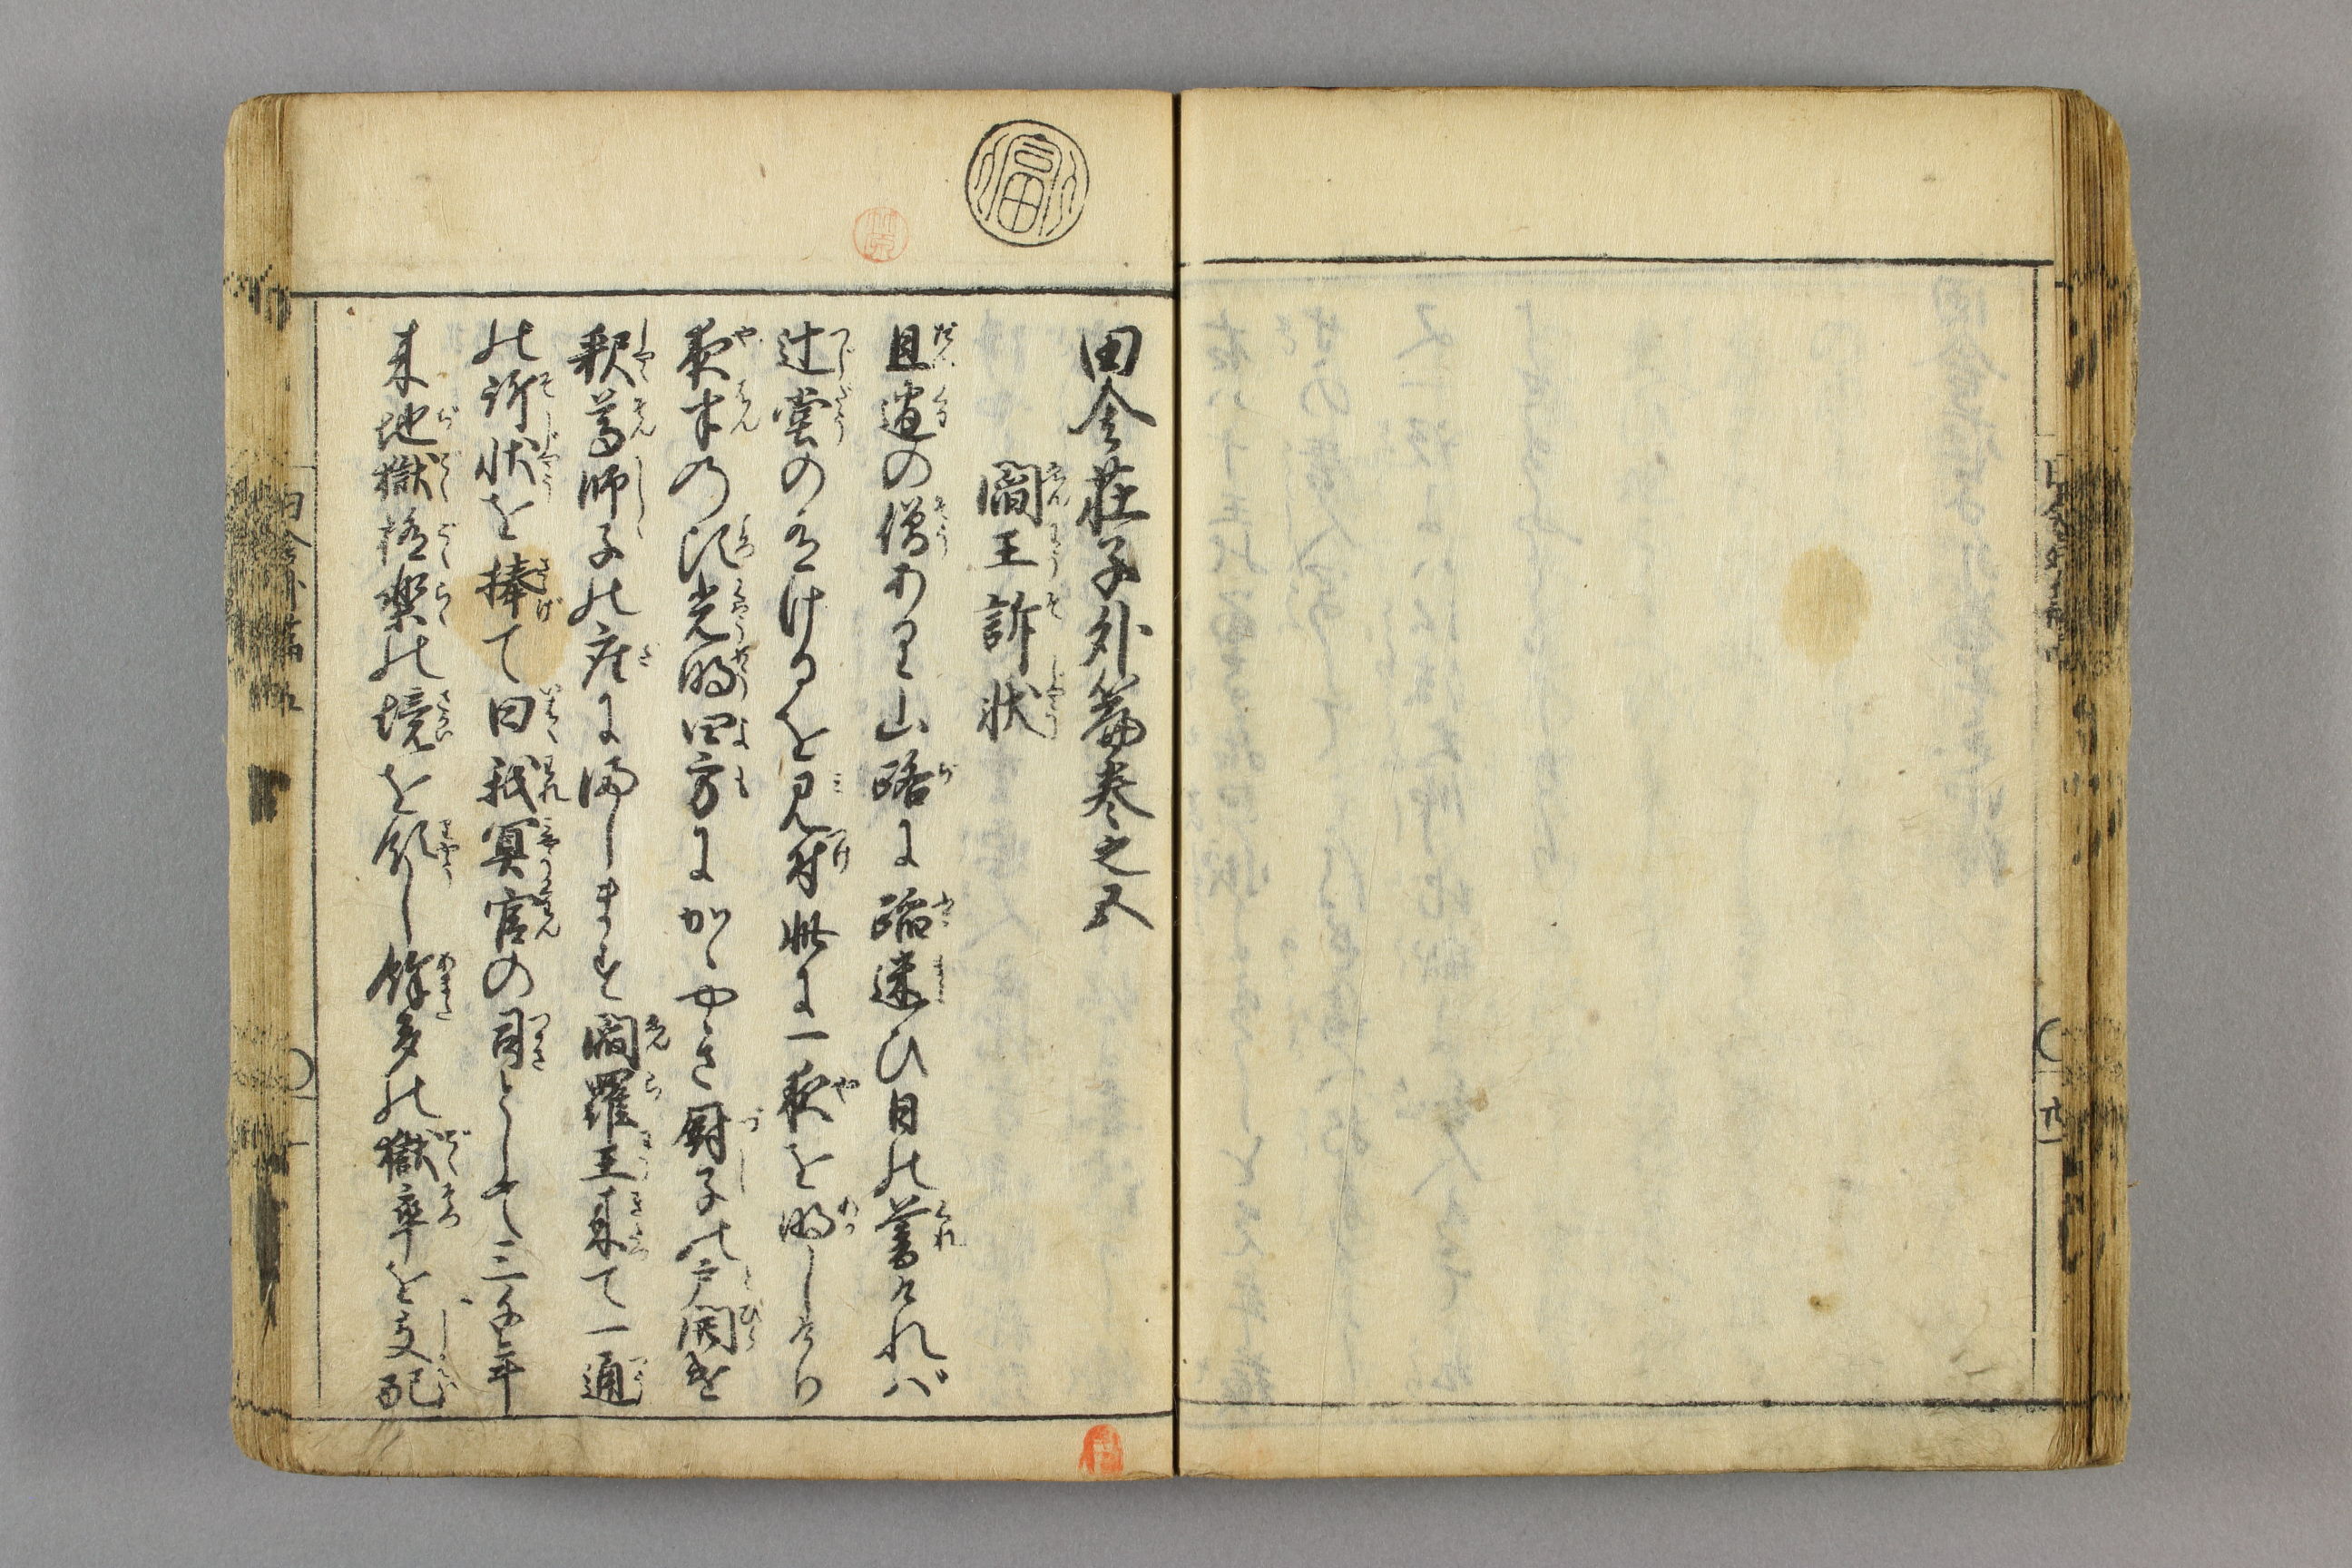 田舎荘子外篇巻之五
閻王訴状
且過の僧あり山路に蹈迷ひ日の暮ければ
辻堂の有けるを見付此に一夜を明しけり
夜半の比光明四方にかゝやき厨子の戸開き
釈尊師子の座にまします閻羅王来て一通
の訴状を捧て曰我冥官の司として三千年
来地獄極楽の境を領し余多の獄卒を支配